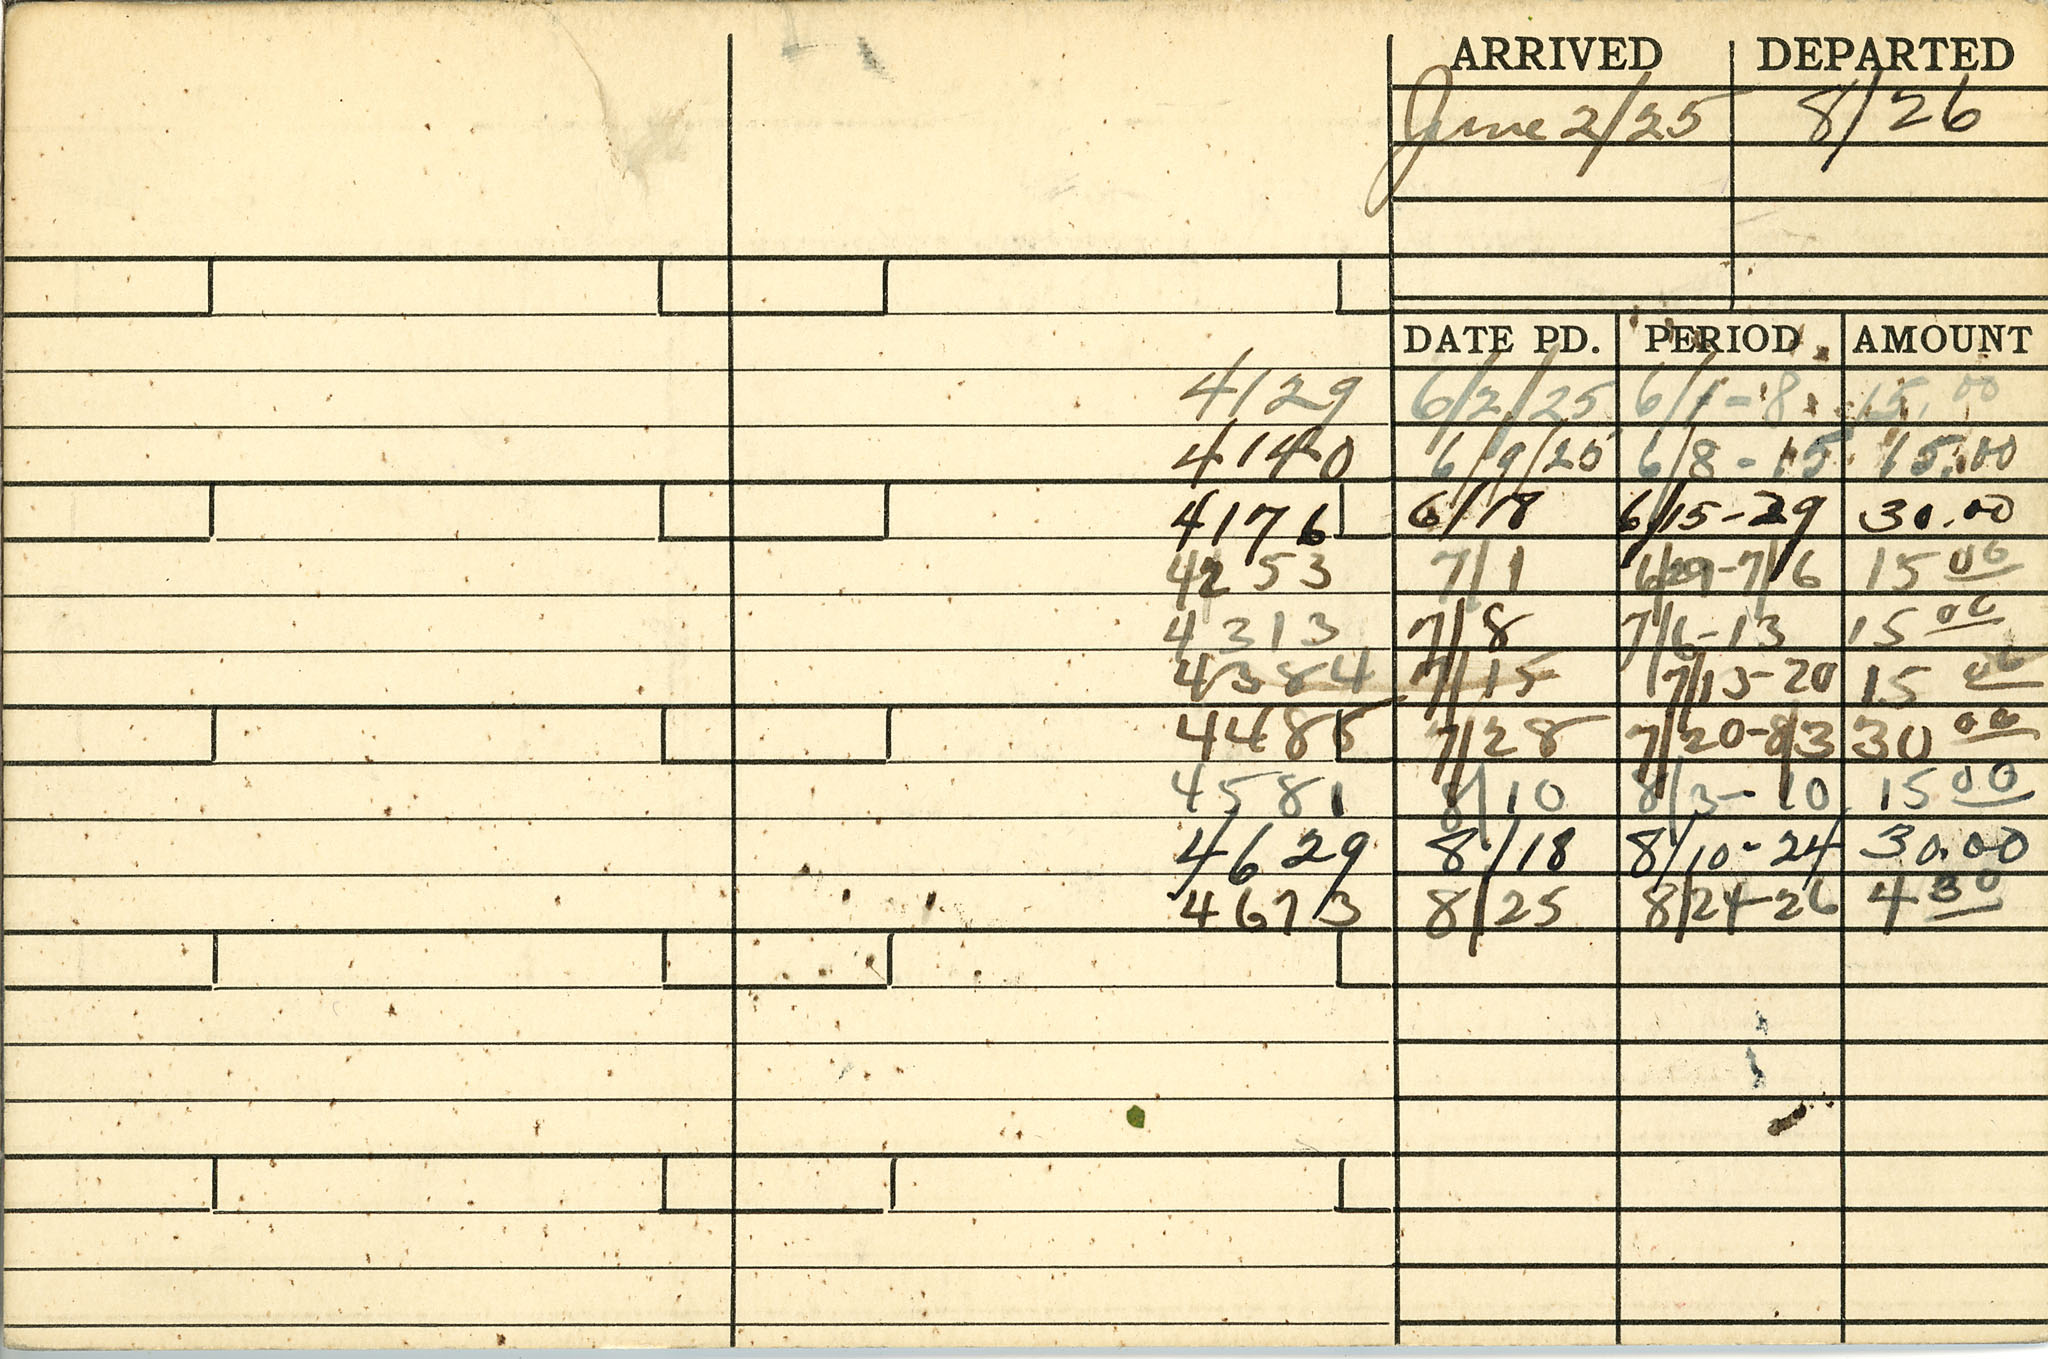 ARRIVED DEPARTED
June 2/25 8/26
DATE PD. PERIOD AMOUNT
4129 6/2/25 6/1-8 15.00
4140 6/9/25 6/8-15 15.00
4176 6/18 6/15-29 30.00
4253 7/1 6/29-7/6 15 00
4313 7/8 7/6-13 15 00
4384 7/15 7/13-20 15 00
4485 7/28 7/20-8/3 30 00
4581 8/10 8/3-10 15 00
4629 8/18 8/10-24 30.00
4673 8/25 8/24-26 4 30